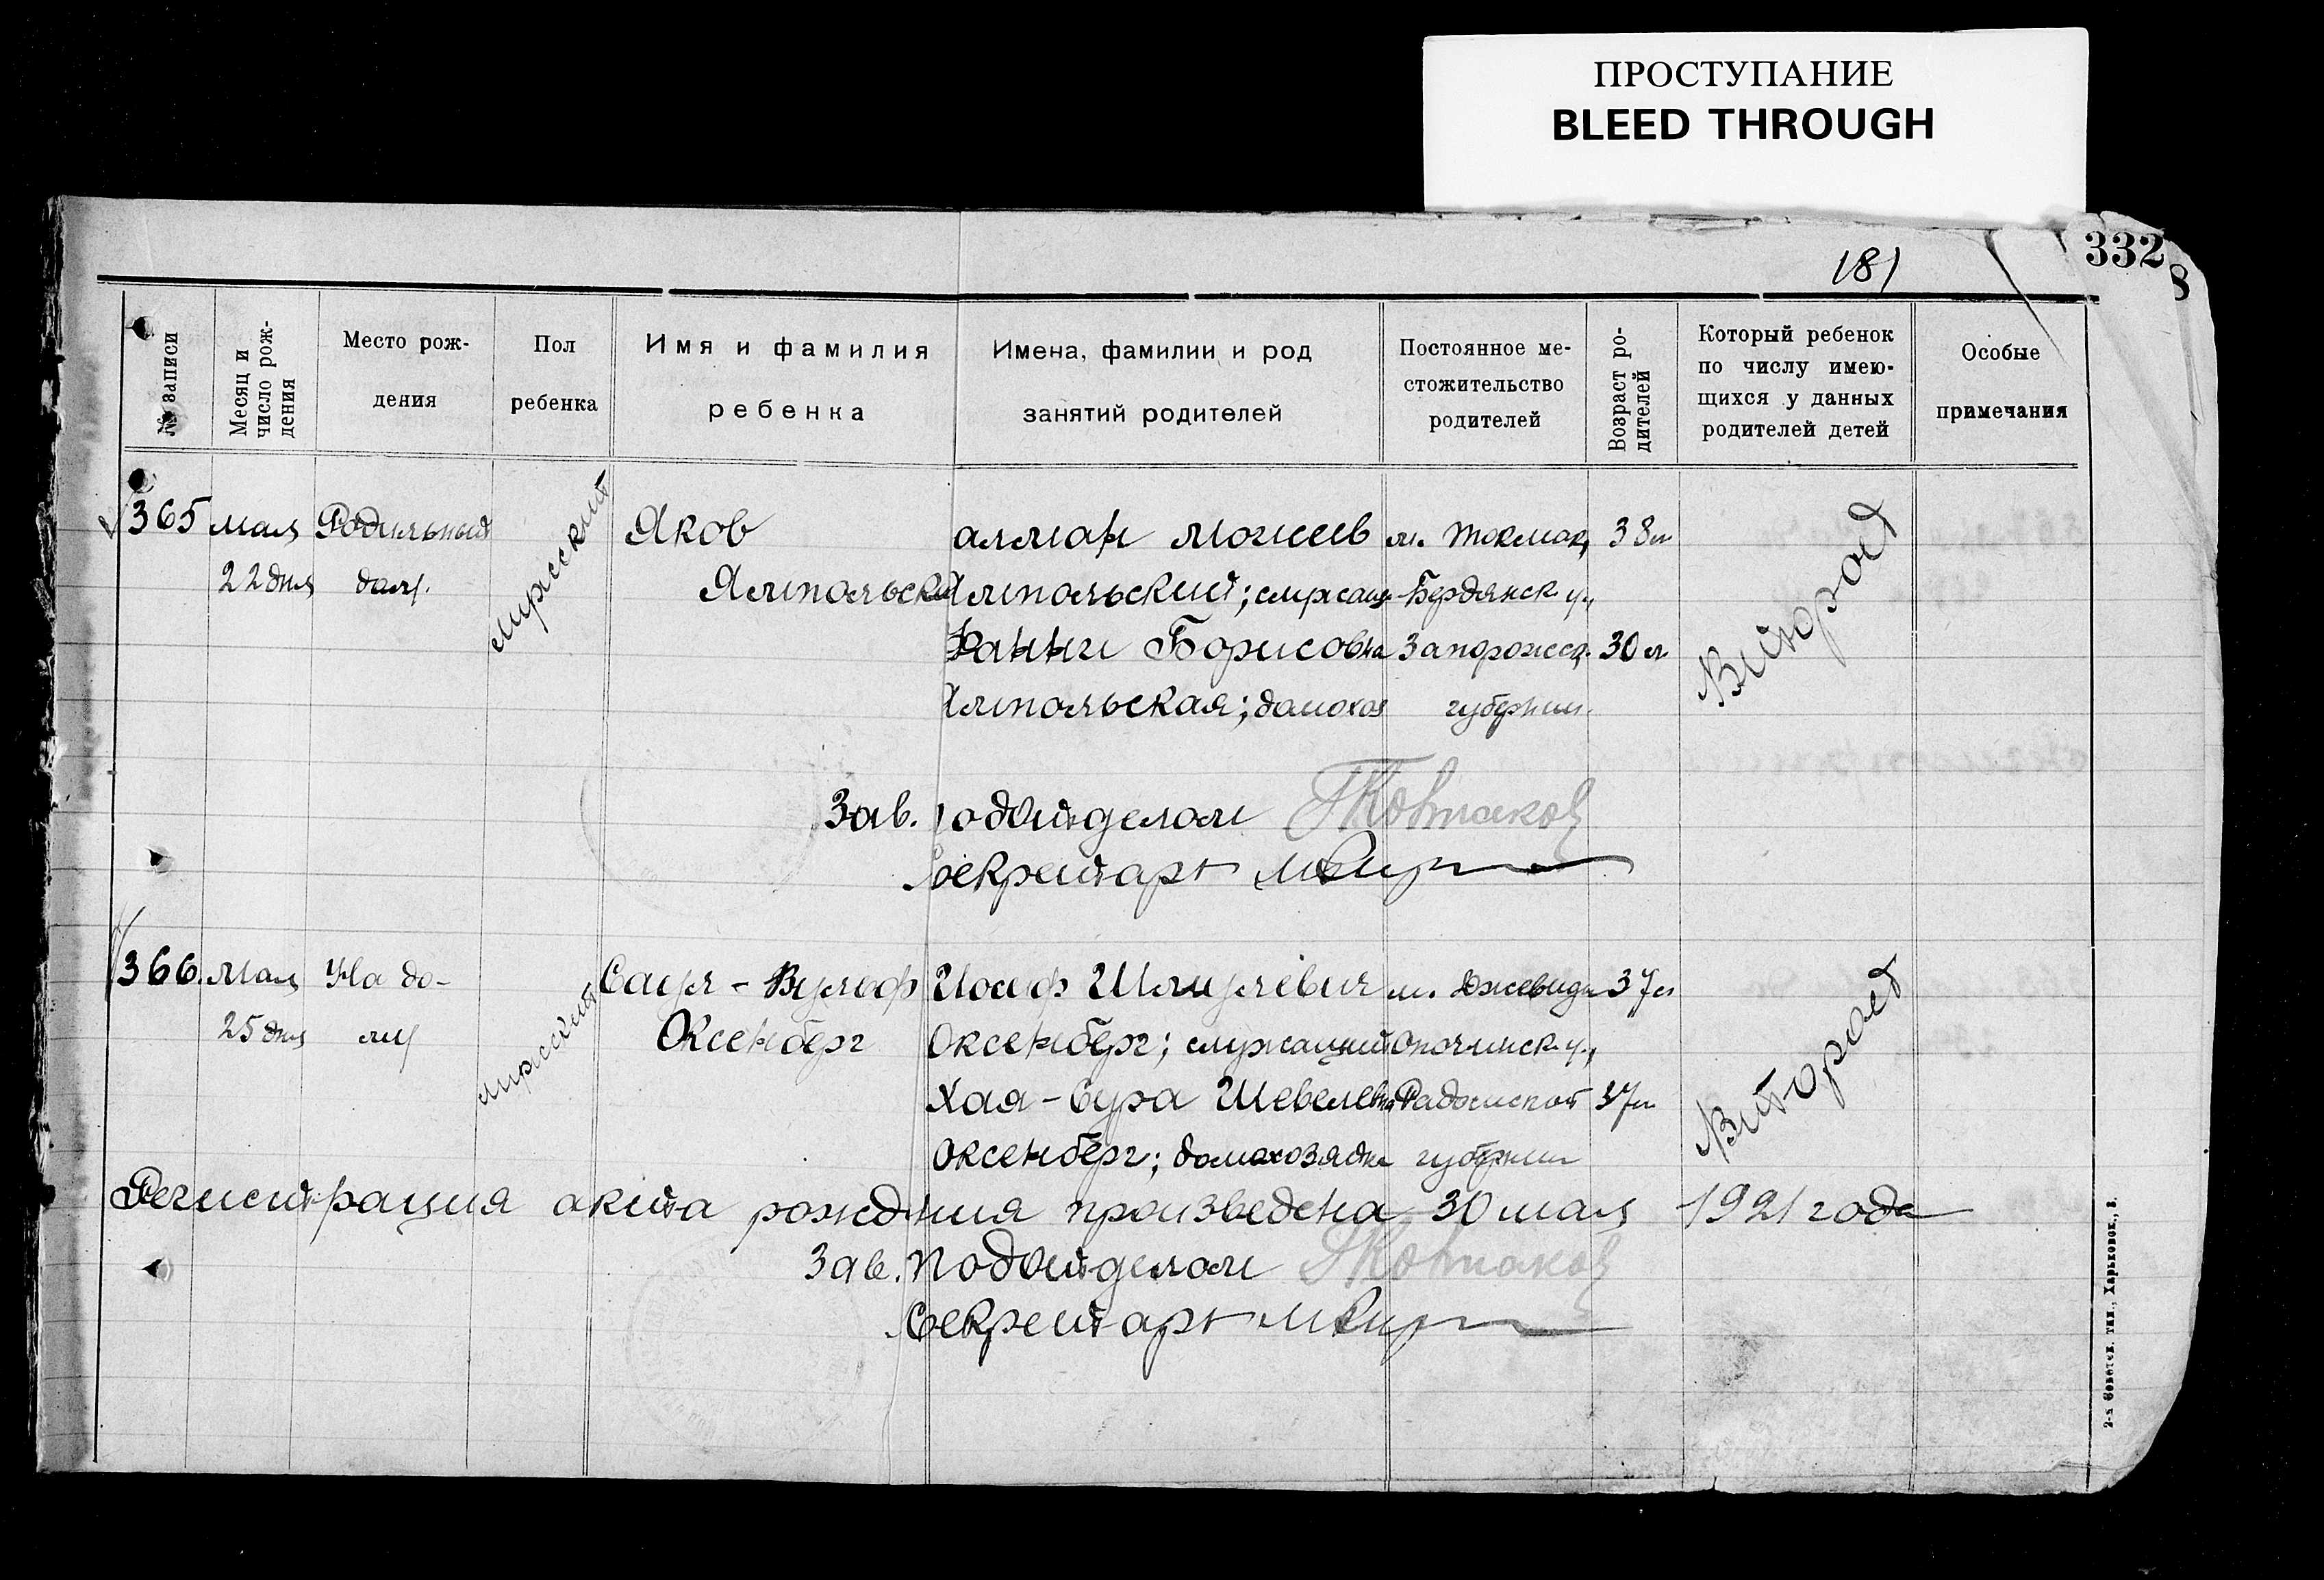 ПРОСТУПАНИЕ
BLEED THROUGH
332
8
181
№ записи
Месяц и число рождения
Место рождения
Пол ребенка
Имя и фамилия ребенка
Имена, фамилии и род занятий родителей
Постоянное местожительство родителей
Возраст родителей
Который ребенок по числу имеющихся у данных родителей детей
Особые примечания
365 мая Родильный мужской Яков Моисеев м. Токмак, 38 л Второй
22 дня дом. Ямпольский Ямпольский; служащ Бердянск. у.,
Фанни Борисовна Запорожск. 30 л
Ямпольская; домохоз губернии.
Зав. подотделом
Секретарь
366. мая На до- мужской Саул-Вульф Иосиф Шмулевич м. 37 л Второй
25 дня му Оксенберг Оксенберг; служащий Опочинск. у.,
Хая-Сура Шевелевна Радомской 37 л
Оксенберг; домохозяйка губернии
Регистрация акта рождения произведена 30 мая 1921 года
Зав. подотделом
Секретарь
2-я Советск. тип., Харьковск., 8.